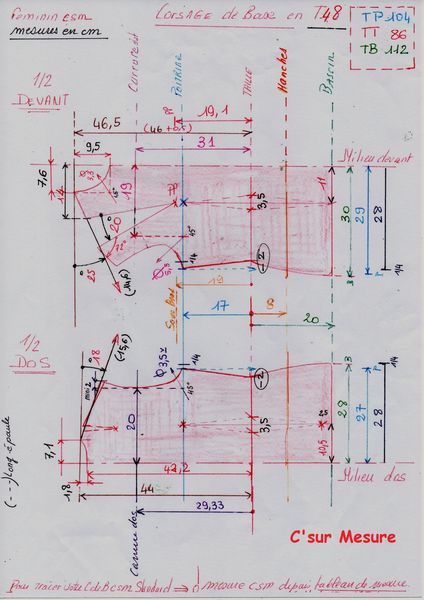 Feminin CSM
mesures en cm
CORSAGE de Base en T48
TP 104
TT 86
TB 112
Carrure devt
Poitrine
TAILLE
Hanches
BASSIN
1/2
DEVANT
19,1
46,5
(46+0,5)
31
9,5
Milieu devant
7,6
19
11
3,5
15°
PP
20
3,5
30
29
28
72°
15°
1/4
25
5,5
-2
(14,6)
19
3
2
1/4
17
8
20
1/2
DOS
18
(15,6)
3,5
1/4
-2
3
1/4
mini 2
45°
20
28
27
28
3,5
25
10,5
7,1
42,2
1,8
44
Milieu dos
(---) Long épaule
29,33
Carrure dos
C'sur Mesure
Pour tracer votre CdeB CSM Standard ⇒ mesure CSM depuis tableau de mesure.